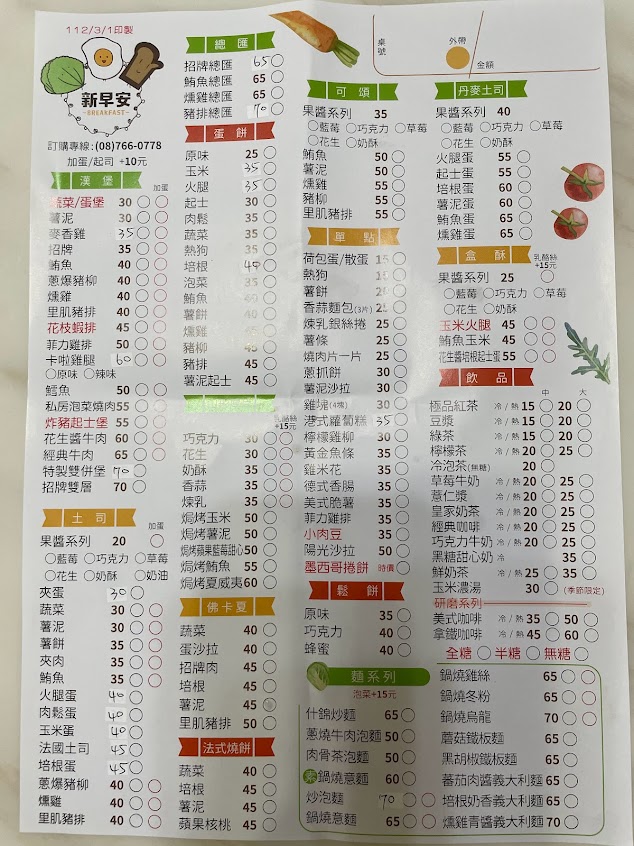 112/3/1印製
新早安
BREAKFAST
訂購專線:(08)766-0778
加蛋/起司 +10元
漢堡
加蛋
蔬菜/蛋堡 30
薯泥 30
麥香雞 35
招牌 35
鮪魚 40
蔥爆豬柳 40
燻雞 40
里肌豬排 40
花枝蝦排 45
菲力雞排 50
卡啦雞腿 60
原味 辣味
鱈魚 50
私房泡菜燒肉 55
炸豬起士堡 55
花生醬牛肉 60
經典牛肉 65
特製雙併堡 70
招牌雙層 70
土司
加蛋
果醬系列 20
藍莓 巧克力 草莓
花生 奶酥 奶油
夾蛋 30
蔬菜 30
薯泥 30
薯餅 30
夾肉 35
鮪魚 35
火腿蛋 40
肉鬆蛋 40
玉米蛋 40
法國土司 45
培根蛋 45
蔥爆豬柳 40
燻雞 40
里肌豬排 40
總匯
招牌總匯 65
鮪魚總匯 65
燻雞總匯 65
豬排總匯 70
蛋餅
原味 25
玉米 35
火腿 35
起士 30
肉鬆 35
蔬菜 35
熱狗 35
培根 40
泡菜 35
鮪魚 40
薯餅 40
燻雞 40
豬柳 45
豬排 45
薯泥起士 45
乳酪絲
+15元
巧克力 30
花生 30
奶酥 35
香蒜 35
煉乳 35
焗烤玉米 50
焗烤薯泥 50
焗烤蘋果藍莓甜心 50
焗烤鮪魚 55
焗烤夏威夷 60
佛卡夏
蔬菜 40
蛋沙拉 40
招牌肉 45
培根 45
薯泥 45
里肌豬排 50
法式燒餅
蔬菜 40
培根 45
薯泥 45
蘋果核桃 45
可頌
果醬系列 35
藍莓 巧克力 草莓
花生 奶酥
鮪魚 50
薯泥 50
燻雞 55
豬柳 55
里肌豬排 55
單點
荷包蛋/散蛋 15
熱狗 15
薯餅 25
香蒜麵包(3片) 25
煉乳銀絲捲 25
薯條 25
燒肉片一片 25
蔥抓餅 30
薯泥沙拉 30
雞塊(4塊) 30
港式蘿蔔糕 35
檸檬雞柳 30
黃金魚條 35
雞米花 35
德式香腸 35
美式脆薯 35
菲力雞排 35
小肉豆 35
陽光沙拉 50
墨西哥捲餅 時價
鬆餅
原味 35
巧克力 40
蜂蜜 40
桌號
外帶
金額
丹麥土司
果醬系列 40
藍莓 巧克力 草莓
花生 奶酥
火腿蛋 55
起士蛋 55
培根蛋 60
薯泥蛋 60
鮪魚蛋 60
燻雞蛋 60
盒酥
乳酪絲
+15元
果醬系列 25
藍莓 巧克力 草莓
花生 奶酥
玉米火腿 45
鮪魚玉米 45
花生醬培根起士蛋 55
飲品
中 大
極品紅茶 冷/熱 15 20
豆漿 冷/熱 15 20
綠茶 冷/熱 15 20
檸檬茶 冷/熱 15 20
冷泡茶(無糖) 20
草莓牛奶 冷/熱 20 25
薏仁漿 冷/熱 20 25
皇家奶茶 冷/熱 20 25
經典咖啡 冷/熱 20 25
巧克力牛奶 冷/熱 20 25
黑糖甜心奶 冷 35
鮮奶茶 冷/熱 25 35
玉米濃湯 30 (季節限定)
研磨系列
美式咖啡 冷/熱 35 50
拿鐵咖啡 冷/熱 45 60
全糖 半糖 無糖
麵系列
泡菜+15元
什錦炒麵 65
蔥燒牛肉泡麵 50
肉骨茶泡麵 50
素 鍋燒意麵 60
炒泡麵 70
鍋燒意麵 65
鍋燒雞絲 65
鍋燒冬粉 65
鍋燒烏龍 70
蘑菇鐵板麵 65
黑胡椒鐵板麵 65
蕃茄肉醬義大利麵 65
培根奶香義大利麵 65
燻雞青醬義大利麵 70